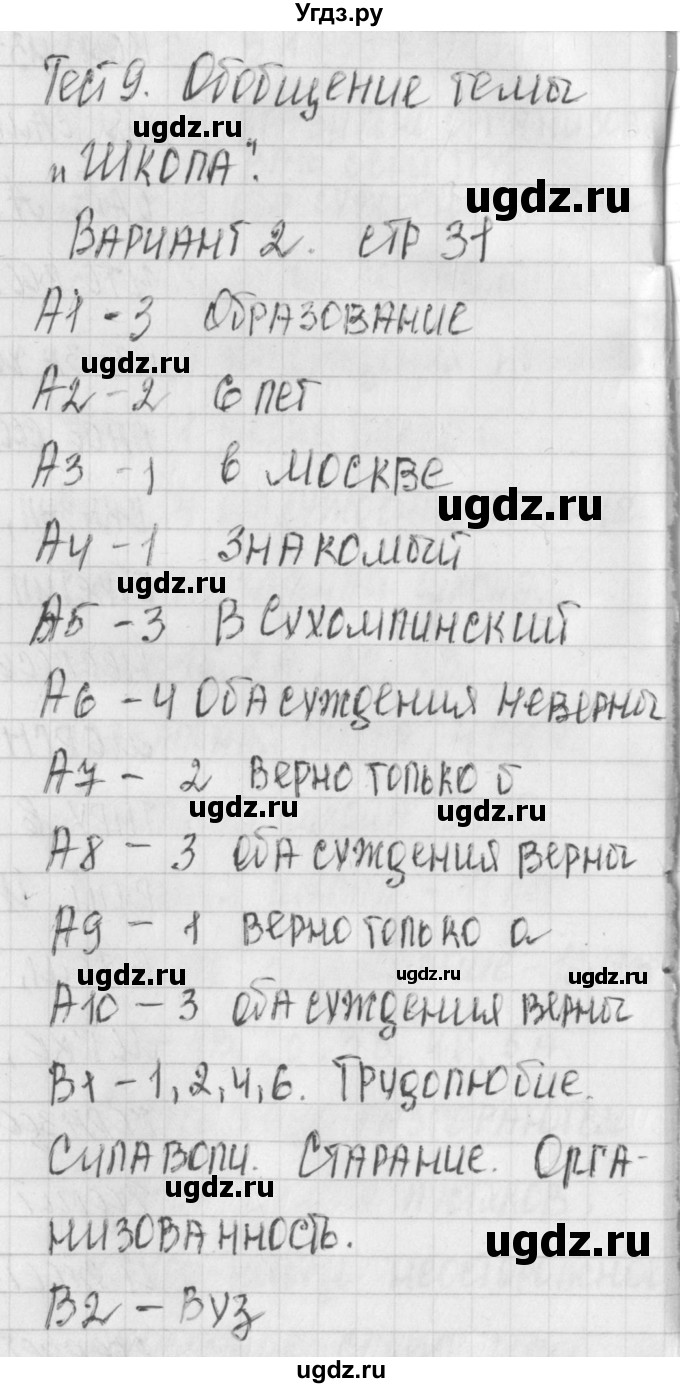 Угдз.ру
Тест 9. Обобщение темы
ugdz.ru
"Школа".
ugdz.ru
Вариант 2. стр 31
А1 - 3 Образование
ugdz.ru
А2 - 2 6 лет
А3 - 1 в Москве
ugdz.ru
А4 - 1 Знакомый
ugdz.ru
А5 - 3 В Сухомлинский
А6 - 4 Оба суждения неверны
А7 - 2 верно только б
ugdz.ru ugdz.ru
А8 - 3 оба суждения верны
А9 - 1 верно только а
ugdz.ru ugdz.ru ugdz.ru
А10 - 3 оба суждения верны
В1 - 1, 2, 4, 6. Трудолюбие.
Сила воли. Старание. Орга-
ugdz.ru
низованность.
ugdz.ru
В2 - Вуз
ugdz.ru